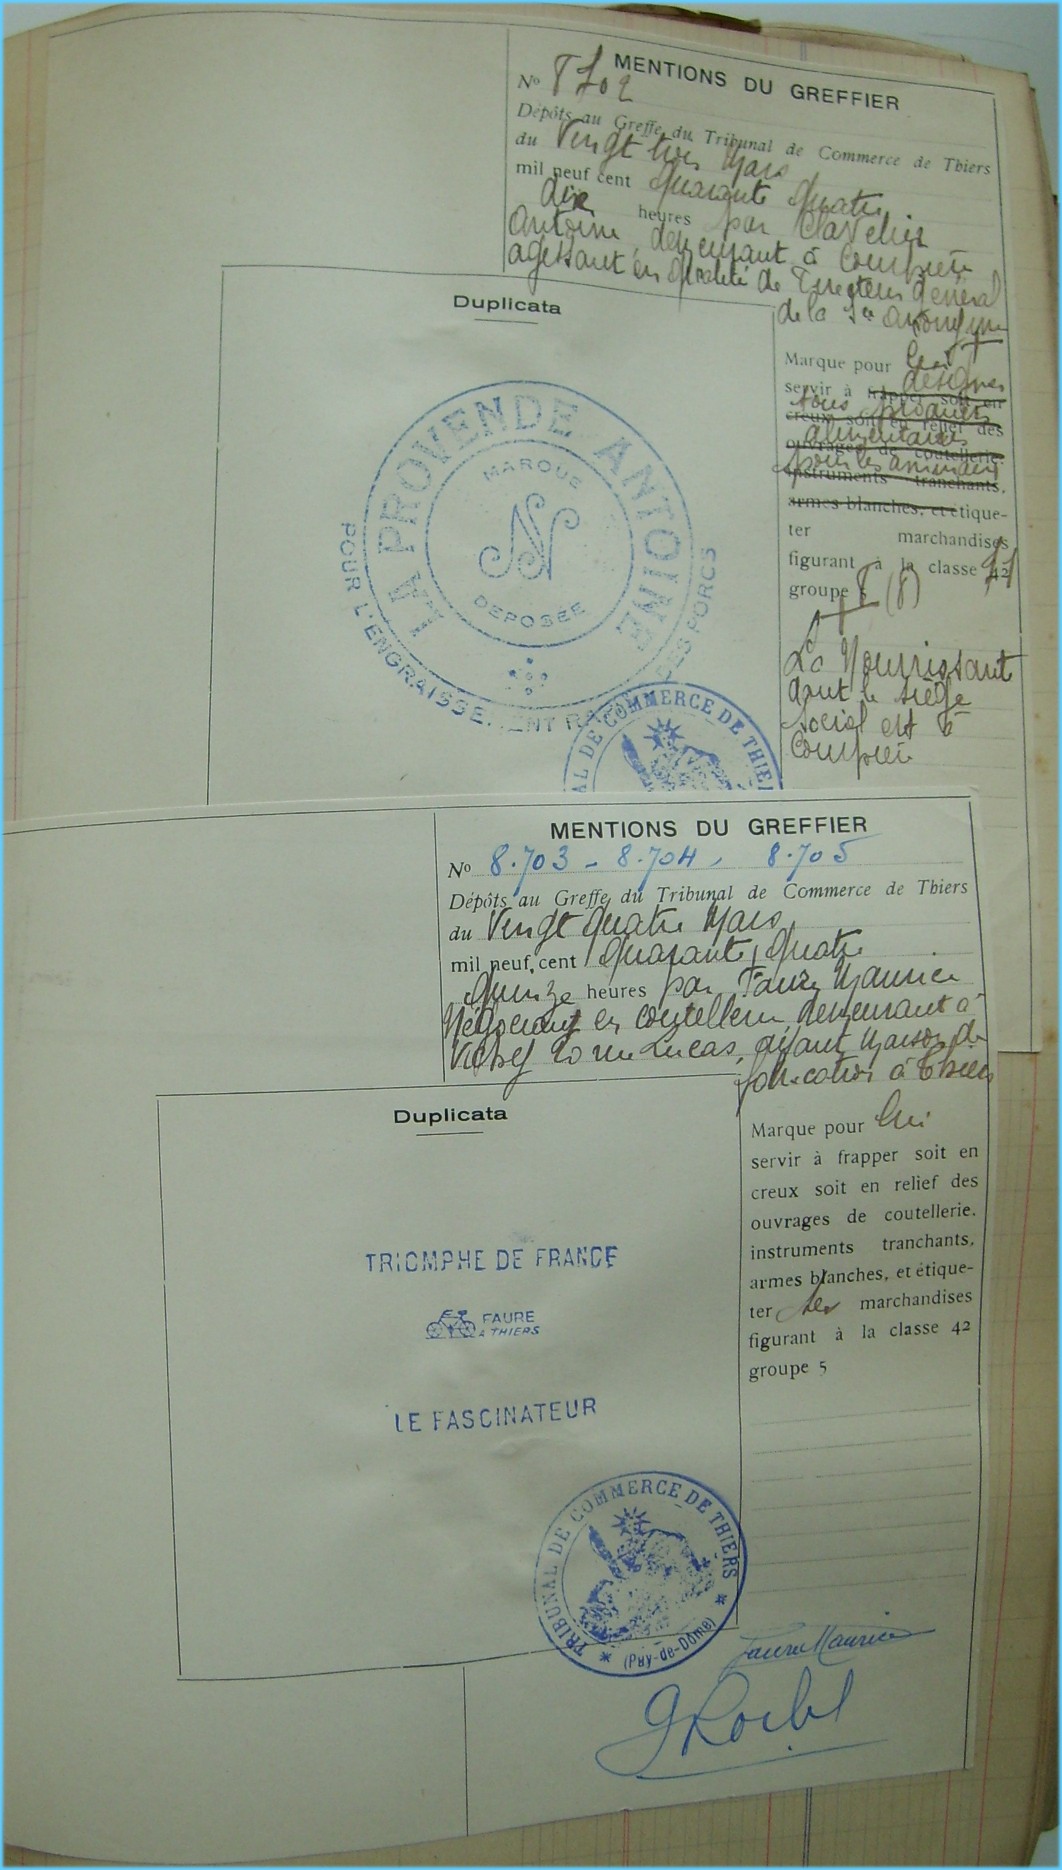 MENTIONS DU GREFFIER
No 8702
Dépôts au Greffe du Tribunal de Commerce de Thiers
du Vingt trois Mars
mil neuf cent quarante quatre
dix heures par
Antoine, demeurant à Courpière
agissant en qualité de Directeur Général
de la Sté anonyme
Duplicata
LA PROVENDE ANTONINE
MARQUE
N
DEPOSÉE
POUR L'ENGRAISSE ENT R DES PORCS
Marque pour lui
servir à frapper soit en
désigner
creux soit en relief des
tous produits
ouvrages de coutellerie.
alimentaires
instruments tranchants,
pour les animaux
armes blanches, et étique-
ter marchandises
figurant à la classe 42
groupe 5 (8)
La Nourrissante
dont le siège
social est à
Courpière
AL DE COMMERCE DE THIE
MENTIONS DU GREFFIER
No 8.703 - 8.704, 8.705
Dépôts au Greffe du Tribunal de Commerce de Thiers
du Vingt quatre Mars
mil neuf cent quarante quatre
quinze heures par Faure Maurice
Négociant en coutellerie demeurant à
Vichy 20 rue Lucas, ayant maison de
fabrication à Thiers
Duplicata
TRIOMPHE DE FRANCE
FAURE
A THIERS
LE FASCINATEUR
Marque pour lui
servir à frapper soit en
creux soit en relief des
ouvrages de coutellerie.
instruments tranchants,
armes blanches, et étique-
ter les marchandises
figurant à la classe 42
groupe 5
TRIBUNAL DE COMMERCE DE THIERS
(Puy-de-Dôme)
Faure Maurice